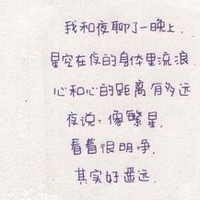 我和夜聊了一晚上.
星空在夜的身体里流浪.
心和心的距离有多远
夜说,像繁星.
看着很明净.
其实好遥远.